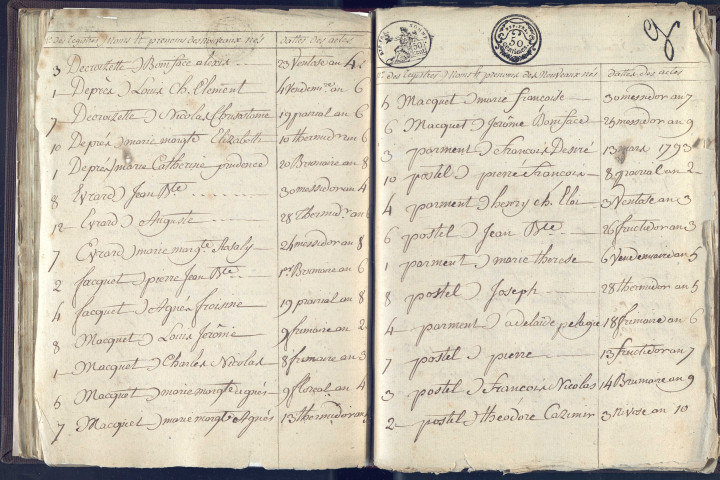 nos des registres Noms et prénoms des Nouveaux nés dattes des actes
3 Decroizette Boniface alexis 23 Ventase an 4
1 Deprès Louis Ch. Clement 4 Vendemre an 6
7 Decroizette Nicolas Chrisostome 19 prairial an 6
10 Deprés marie margte Elizabeth 10 thermidor an 6
1 Deprés marie Catherine prudence 20 Brumaire an 8
8 Evrard Jean Bte 30 messidor an 4
12 Evrard Auguste 28 thermidr an 6
7 Evrard marie margte Nataly 24 messidor an 8
2 facquet pierre Jean Bte 1er Brumaire an 6
4 facquet Agnés froisine 19 prairial an 8
8 Macquet Louis Jerôme 9 frimaire an 2
1 Macquet Charles Nicolas 8 frimaire an 3
6 Macquet marie margte agnés 9 floréal an 4
7 Macquet marie margte Agnés 13 thermidor an
50
50
9
nos des registres Noms et prénoms des Nouveaux nés dattes des actes
5 Macquet marie francoise 30 messidor an 7
6 Macquet Jerôme Boniface 25 messidor an 9
3 parment francois Desiré 13 mars 1793
10 postel pierre francois 8 prairial an 2
4 parment henry ch. Eloi 3 Ventase an 3
6 postel Jean Bte 26 fructidor an 3
1 parment marie therese 6 Vendemiaire an 5
8 postel Joseph 28 thermidor an 5
4 parment adelaïde pelagie 18 frimaire an 6
7 postel pierre 13 fructidor an 7
3 postel francois Nicolas 14 Brumaire an 9
2 postel théodore Cazimir 3 Nivose an 10